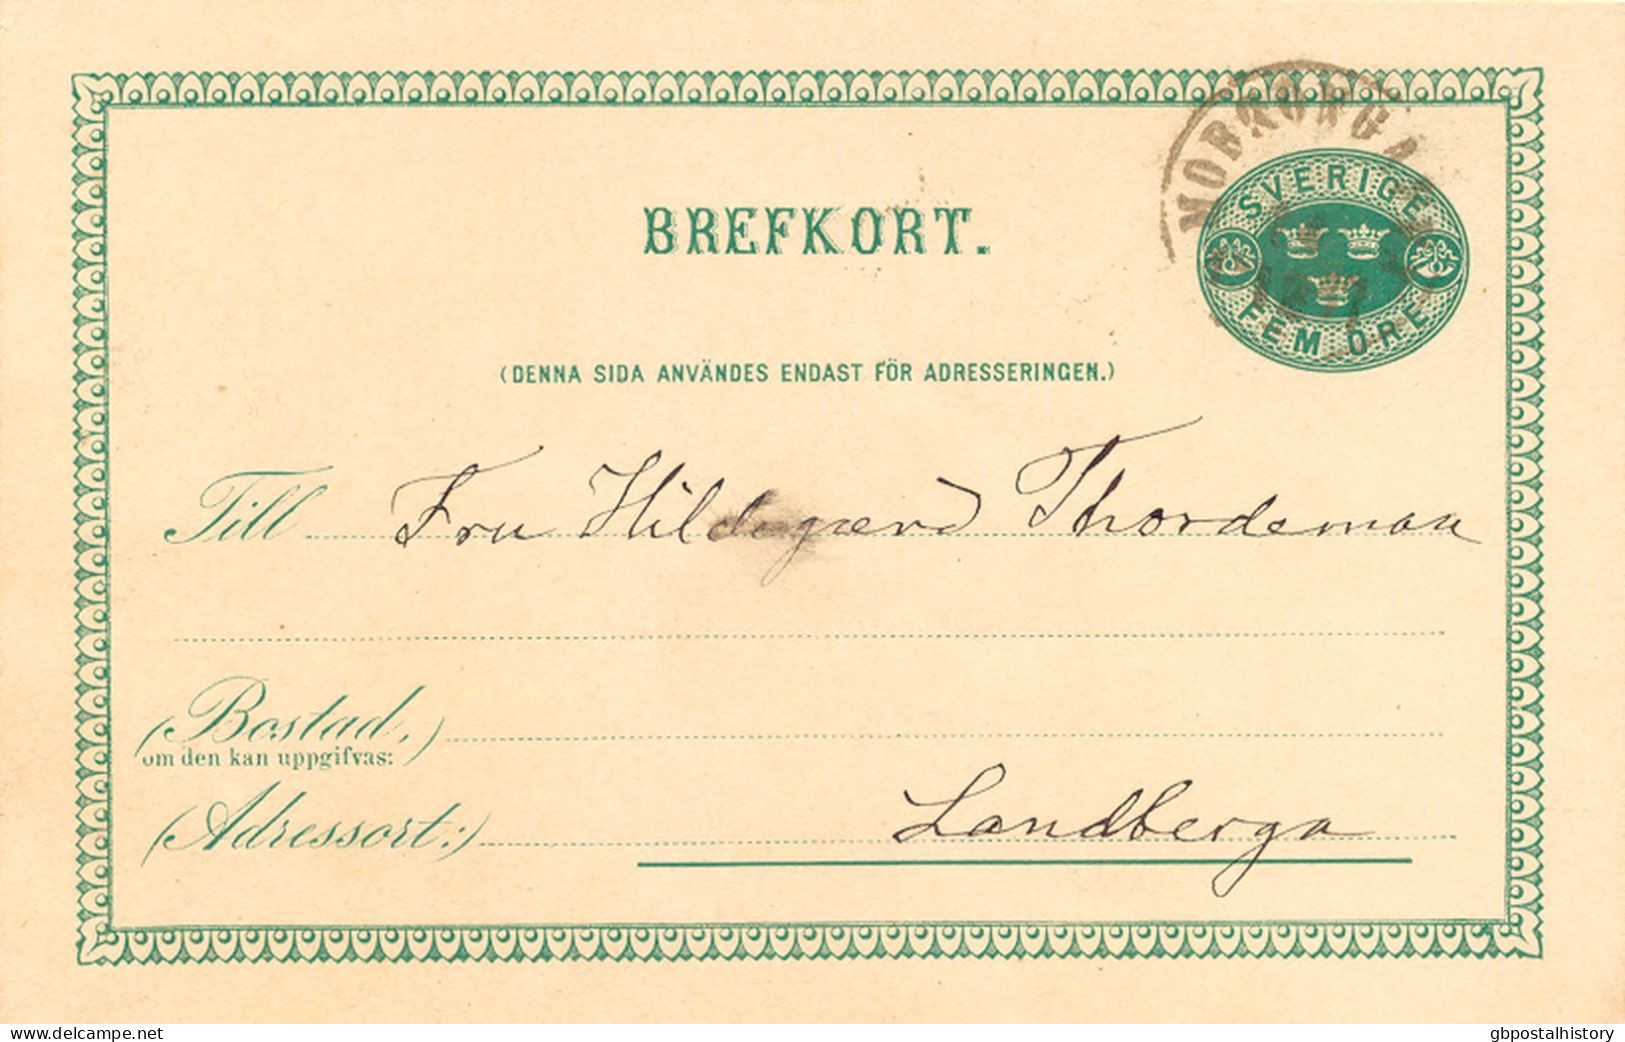 BREFKORT.
SVERIGE
FEM ÖRE
(DENNA SIDA ANVÄNDES ENDAST FÖR ADRESSERINGEN.)
Till Fru Hildegard Thordeman
(Bostad,)
om den kan uppgifvas:
(Adressort:) Landberga
www.delcampe.net
gbpostalhistory